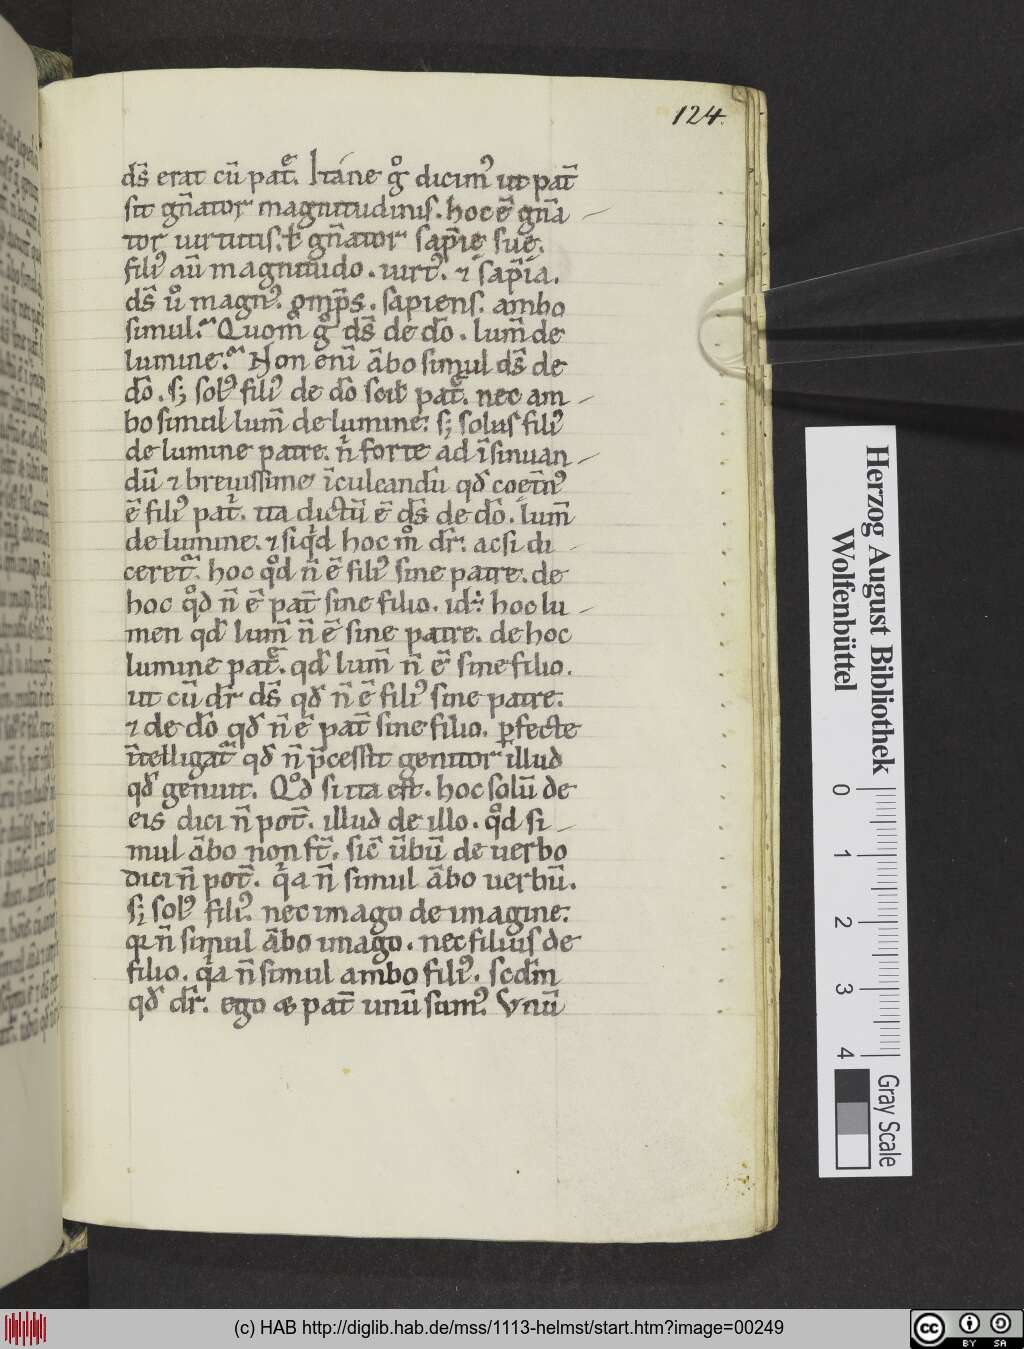 124.
ds̄ erat cū pat̄. Itane gͦ dicim᷒ ut pat̄
sit gn̄ator magnitudinis. hoc ē gn̄a
tor uirtutis. ł gn̄ator sap̄ie sue.
fili᷒ aū magnitudo. uirt᷒. ⁊ sap̄ia.
ds̄ uͦ magn᷒. om̄ps. sapiens. ambo
simul. Quom̄ gͦ ds̄ de dō. lum̄ de
lumine. Non eni ābo simul ds̄ de
dō. s; sol᷒ fili᷒ de dō scił pat̄. nec am
bo simul lum̄ de lumine. s; solus fili᷒
de lumine patre. n̄ forte ad īsinuan
dū ⁊ breuissime īculcandū qđ coet̄n᷒
ē fili᷒ pat̄. ita dictū ē ds̄ de dō. lum̄
de lumine. ⁊ siqͥd hoc mͦ dr̄. acsi di
ceret̄. hoc qͦd n̄ ē fili᷒ sine patre. de
hoc qͦd n̄ ē pat̄ sine filio. id. hoc lu
men qđ lum̄ n̄ ē sine patre. de hoc
lumine pat̄. qđ lum̄ n̄ ē sine filio.
ut cū dr̄ ds̄ qđ n̄ ē fili᷒ sine patre.
⁊ de dō qđ n̄ ē pat̄ sine filio. ꝑfecte
īntelligat̄ qđ n̄ p̄cessit genitor illud
qđ genuit. Qͦd si ita est. hoc solū de
eis dici n̄ pot̄. illud de illo. qͦd si
mul ābo non st̄. sic̄ ūbū de uerbo
dici n̄ pot̄. qͥa n̄ simul ābo uerbū.
s; sol᷒ fili᷒. nec imago de imagine.
qͥ n̄ simul ābo imago. nec filius de
filio. qͥa n̄ simul ambo fili᷒. scdm̄
qđ dr̄. ego & pat̄ unū sum᷒. Vnū
Herzog August Bibliothek
Wolfenbüttel
0 1 2 3 4
Gray Scale
(c) HAB http://diglib.hab.de/mss/1113-helmst/start.htm?image=00249
cc BY SA